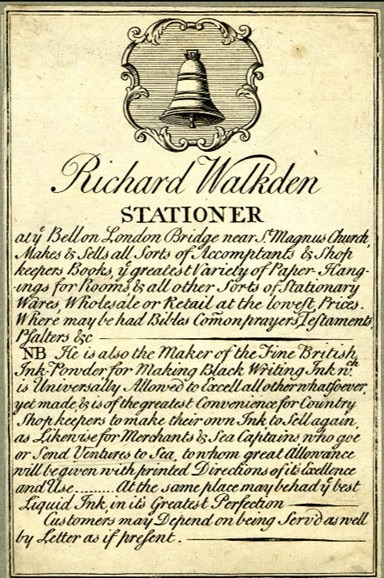 Richard Walkden
STATIONER
at yͤ Bell on London Bridge near Sᵗ. Magnus Church,
Makes & Sells all Sorts of Accomptants & Shop
keepers Books, yͤ greatest Variety of Paper-Hang-
ings for Rooms, & all other Sorts of Stationary
Wares, Wholesale or Retail at the lowest Prices.
Where may be had Bibles Com̄onprayers, Testaments,
Psalters &c
NB. He is also the Maker of the Fine British
Ink-Powder for Making Black Writing Ink wᶜʰ
is Universally Allow'd to Excell all other whatsoever,
yet made, & is of the greatest Convenience for Country
Shopkeepers to make their own Ink to Sell again,
as Likewise for Merchants & Sea Captains who goe
or Send Ventures to Sea, to whom great Allowance
will be given with printed Directions of its Excellence
and Use.......... At the same place may be had yͤ best
Liquid Ink, in its Greatest Perfection
Customers may Depend on being Serv'd as well
by Letter as if present.